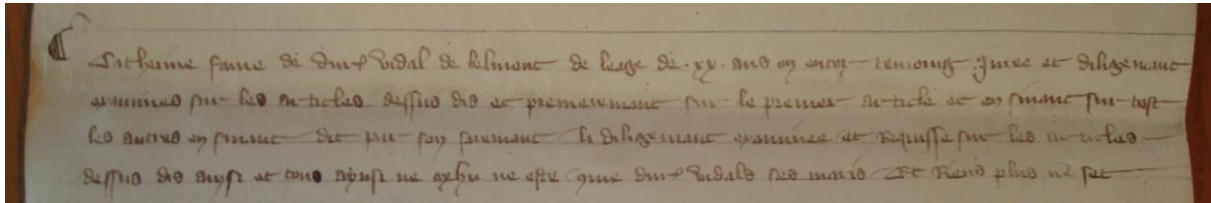 Catherine fame de dur Vidal de belmont de leage de .xx. ans ou entor temoing Juree et diligemant
examinee sur les articles dessus dis et premieremant sur le premier article et en suiant sur tost
les autres en suiant dit par son seremant li diligemant examinee et Requisse sur les articles
dessus dis aynsi et tout aynsi ne plus ne est que dur Vidals ses maris Et Riens plus ne set